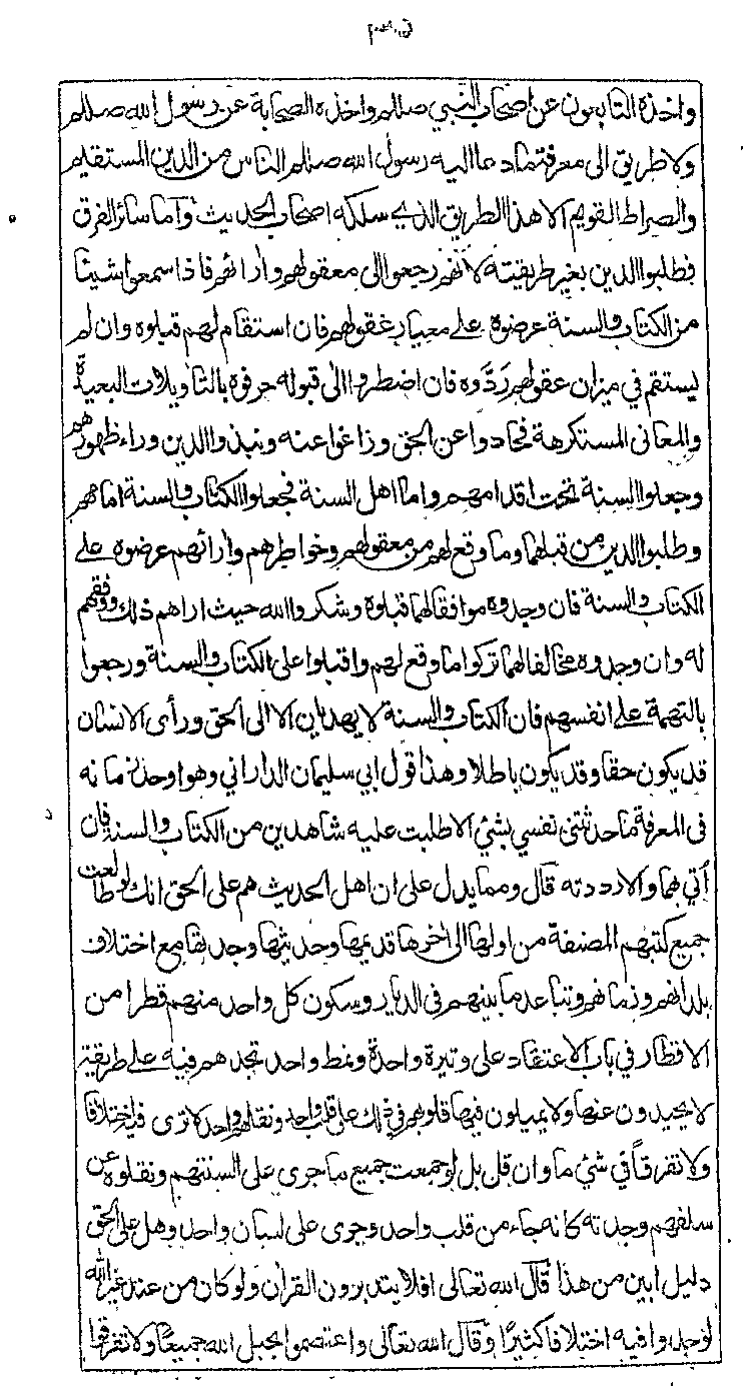 واخذه التابعون عن اصحاب النبي صللم واخذه الصحابة عن رسول الله صللم
ولا طريق الى معرفة ما دعا اليه رسول الله صللم الناس من الدين المستقيم
والصراط القويم الا هذا الطريق الذي سلكه اصحاب الحديث وآما سائر الفرق
فطلبوا الدين بغير طريقيته لانهم رجعوا الى معقولهم وارائهم فاذا سمعوا شيئا
من الكتاب والسنة عرضوه على معيار عقولهم فان استقام لهم قبلوه وان لم
يستقم في ميزان عقولهم رَدُّوه فان اضطروا الى قبوله حرفوه بالتاويلات البعيدة
والمعانى المستكرهة فحادوا عن الحق وزاغوا عنه ونبذوا الدين وراء ظهورهم
وجعلوا السنة تحت اقدامهم واما اهل السنة فجعلوا الكتاب والسنة امامهم
وطلبوا الدين من قبلهما وما وقع لهم من معقولهم وخواطرهم وارائهم عرضوه على
الكتاب والسنة فان وجدوه موافقا لهما قبلوه وشكروا الله حيث اراهم ذلك ووفقهم
له وان وجدوه مخالفا لهما تركوا ما وقع لهم واقبلوا على الكتاب والسنة ورجعوا
بالتهمة على انفسهم فان الكتاب والسنة لا يهديان الا الى الحق ورأى الانسان
قد يكون حقا وقد يكون باطلا وهذا قول ابي سليمان الداراني وهو اوحد زمانه
فى المعرفة ما حدثتنى نفسي بشئ الا طلبت عليه شاهدين من الكتاب والسنة فان
أتي بهما والا رددته قآل ومما يدل على ان اهل الحديث هم على الحق انك لو طالعت
جميع كتبهم المصنفة من اولها الى اخرها قديمها وحديثها وجدتها مع اختلاف
بلدانهم وزمانهم وتباعد ما بينهم فى الديار وسكون كل واحد منهم قطرا من
الاقطار في باب الاعتقاد على وتيرة واحدة ونمط واحد تجدهم فيه على طريقة
لا يحيدون عنها ولا يميلون فيها قلوبهم في ذلك على قلب واحد ونقلهم واحد لا ترى فيه اختلافا
ولا تفرقاً في شئ ما وان قل بل لو جمعت جميع ما جرى على السنتهم ونقلوه عن
سلفهم وجدته كانه جاء من قلب واحد وجرى على لسان واحد وهل على الحق
دليل ابين من هذا قآل الله تعالى افلا يتدبرون القران ولو كان من عند غير الله
لوجدوا فيه اختلافا كثيرًا وقآل الله تعالى واعتصموا بحبل الله جميعًا ولا تفرقوا